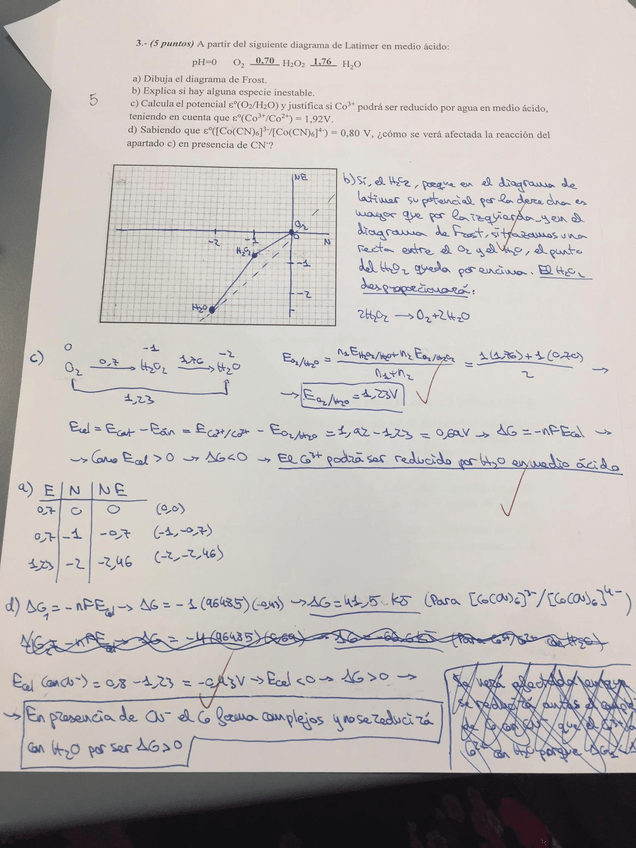 3.- (5 puntos) A partir del siguiente diagrama de Latimer en medio ácido:
pH=0 O₂ 0,70 H₂O₂ 1,76 H₂O
a) Dibuja el diagrama de Frost.
b) Explica si hay alguna especie inestable.
c) Calcula el potencial εº(O₂/H₂O) y justifica si Co³⁺ podrá ser reducido por agua en medio ácido,
teniendo en cuenta que εº(Co³⁺/Co²⁺) = 1,92V.
d) Sabiendo que εº([Co(CN)₆]³⁻/[Co(CN)₆]⁴⁻) = 0,80 V, ¿cómo se verá afectada la reacción del
apartado c) en presencia de CN⁻?
5
NE
O₂
0
N
-2
-1
H₂O₂
-1
-2
H₂O
b) Si, el H₂O₂, porque en el diagrama de
latimer su potencial por la derecha es
mayor que por la izquierda y en el
diagrama de Frost, si trazamos una
recta entre el O₂ y el H₂O, el punto
del H₂O₂ queda por encima. El H₂O₂
desproporcionará:
2H₂O₂ → O₂+2H₂O
c) 0 -1 -2
O₂ 0,7→ H₂O₂ 1,76→ H₂O
1,23
E O₂/H₂O = n₁E H₂O₂/H₂O + n₂E O₂/H₂O₂ / n₁+n₂ = 1(1,76)+1(0,70) / 2 →
→ E O₂/H₂O = 1,23V
Ecel = Ecat - Eán = E Co³⁺/Co²⁺ - E O₂/H₂O = 1,92-1,23 = 0,69V → ΔG = -nFEcel →
→ Como Ecel > 0 → ΔG<0 → El Co³⁺ podrá ser reducido por H₂O en medio ácido
a) E N NE
0,7 0 0 (0,0)
0,7 -1 -0,7 (-1,-0,7)
1,23 -2 -2,46 (-2,-2,46)
d) ΔG₁ = -nFEcel → ΔG = -1(96485)(-0,43) → ΔG = 41,5 kJ (Para [Co(CN)₆]³⁻/[Co(CN)₆]⁴⁻)
Ecel (con CN⁻) = 0,8-1,23 = -0,43V → Ecel<0 → ΔG>0 →
→ En presencia de CN⁻ el Co forma complejos y no se reducirá
con H₂O por ser ΔG>0